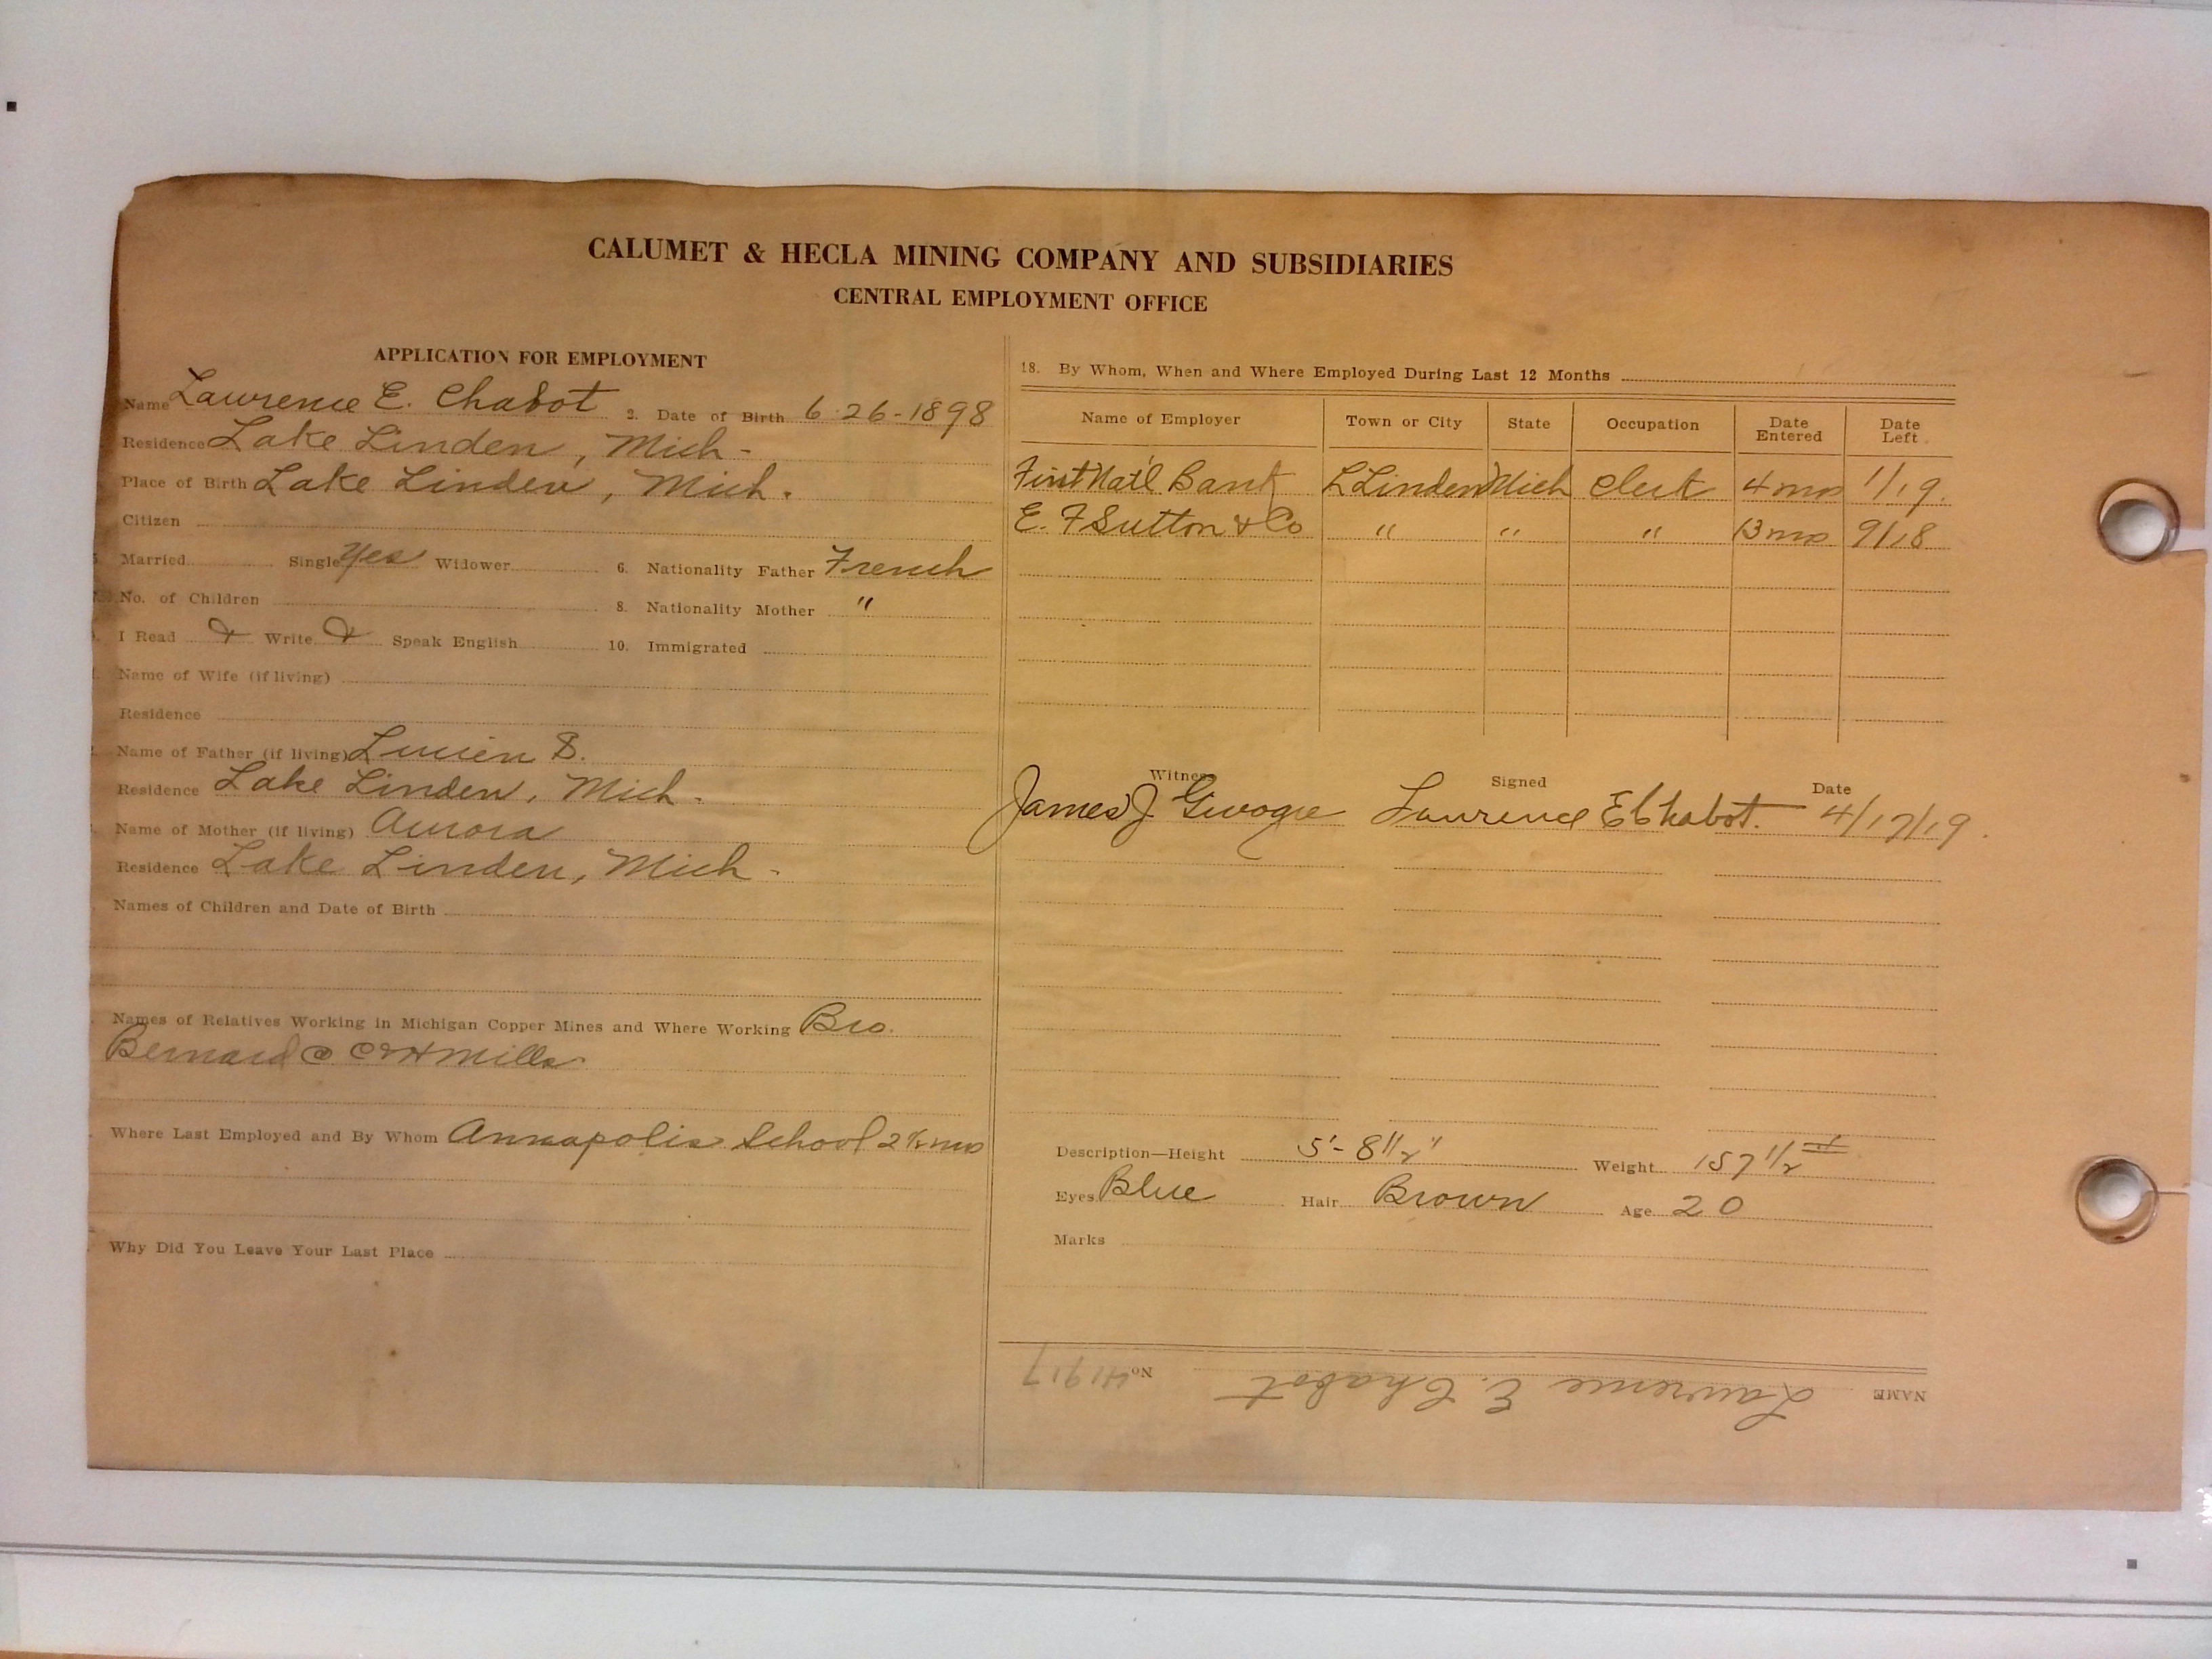 CALUMET & HECLA MINING COMPANY AND SUBSIDIARIES
CENTRAL EMPLOYMENT OFFICE
APPLICATION FOR EMPLOYMENT
Name Lawrence E. Chabot 2. Date of Birth 6-26-1898
Residence Lake Linden, Mich.
Place of Birth Lake Linden, Mich.
Citizen
Married Single Yes Widower 6. Nationality Father French
No. of Children 8. Nationality Mother "
I Read & Write & Speak English 10. Immigrated
Name of Wife (if living)
Residence
Name of Father (if living) Lucien B.
Residence Lake Linden, Mich.
Name of Mother (if living) Aurora
Residence Lake Linden, Mich.
Names of Children and Date of Birth
Names of Relatives Working in Michigan Copper Mines and Where Working Bro.
Bernard @ C&H Mills
Where Last Employed and By Whom Annapolis School 2 1/2 mo
Why Did You Leave Your Last Place
18. By Whom, When and Where Employed During Last 12 Months
Name of Employer Town or City State Occupation Date Entered Date Left
First Nat'l Bank L Linden Mich Clerk 4 mo 1/19.
E. F Sutton & Co " " " 13 mo 9/18
Witness Signed Date
James J. Lawrence E Chabot. 4/17/19.
Description—Height 5'-8 1/2" Weight 157 1/2 #
Eyes Blue Hair Brown Age 20
Marks
NAME Lawrence E. Chabot No. 41917